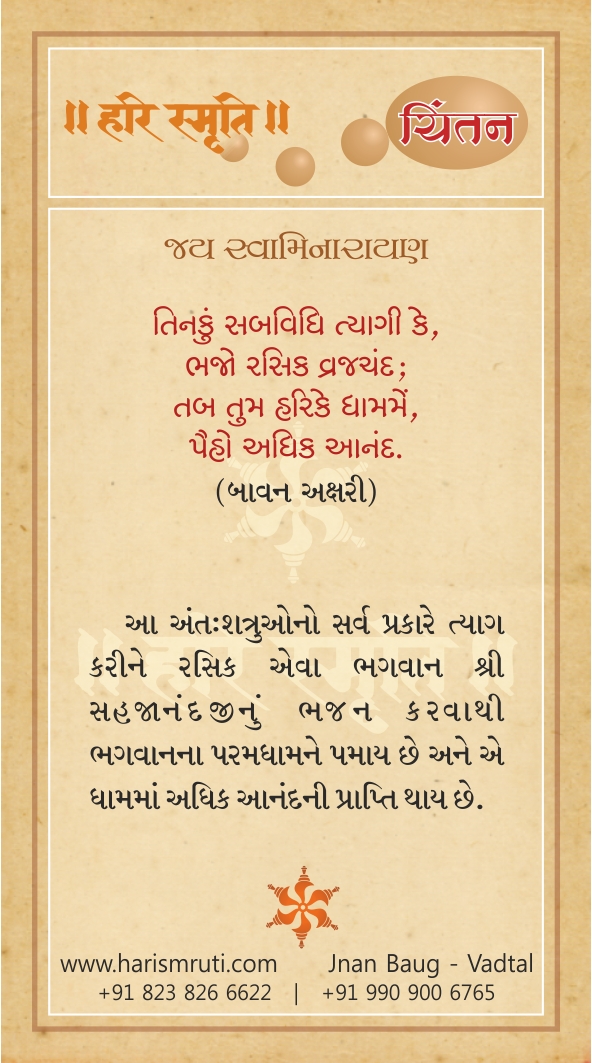 ॥ हरि स्मृति ॥
ચિંતન
જય સ્વામિનારાયણ
તિનકું સબવિધિ ત્યાગી કે,
ભજો રસિક વ્રજચંદ;
તબ તુમ હરિકે ધામમેં,
પૈહો અધિક આનંદ.
(બાવન અક્ષરી)
આ અંતઃશત્રુઓનો સર્વ પ્રકારે ત્યાગ
કરીને રસિક એવા ભગવાન શ્રી
સહજાનંદજીનું ભજન કરવાથી
ભગવાનના પરમધામને પમાય છે અને એ
ધામમાં અધિક આનંદની પ્રાપ્તિ થાય છે.
॥ हरि स्मृति ॥
www.harismruti.com Jnan Baug - Vadtal
+91 823 826 6622 | +91 990 900 6765